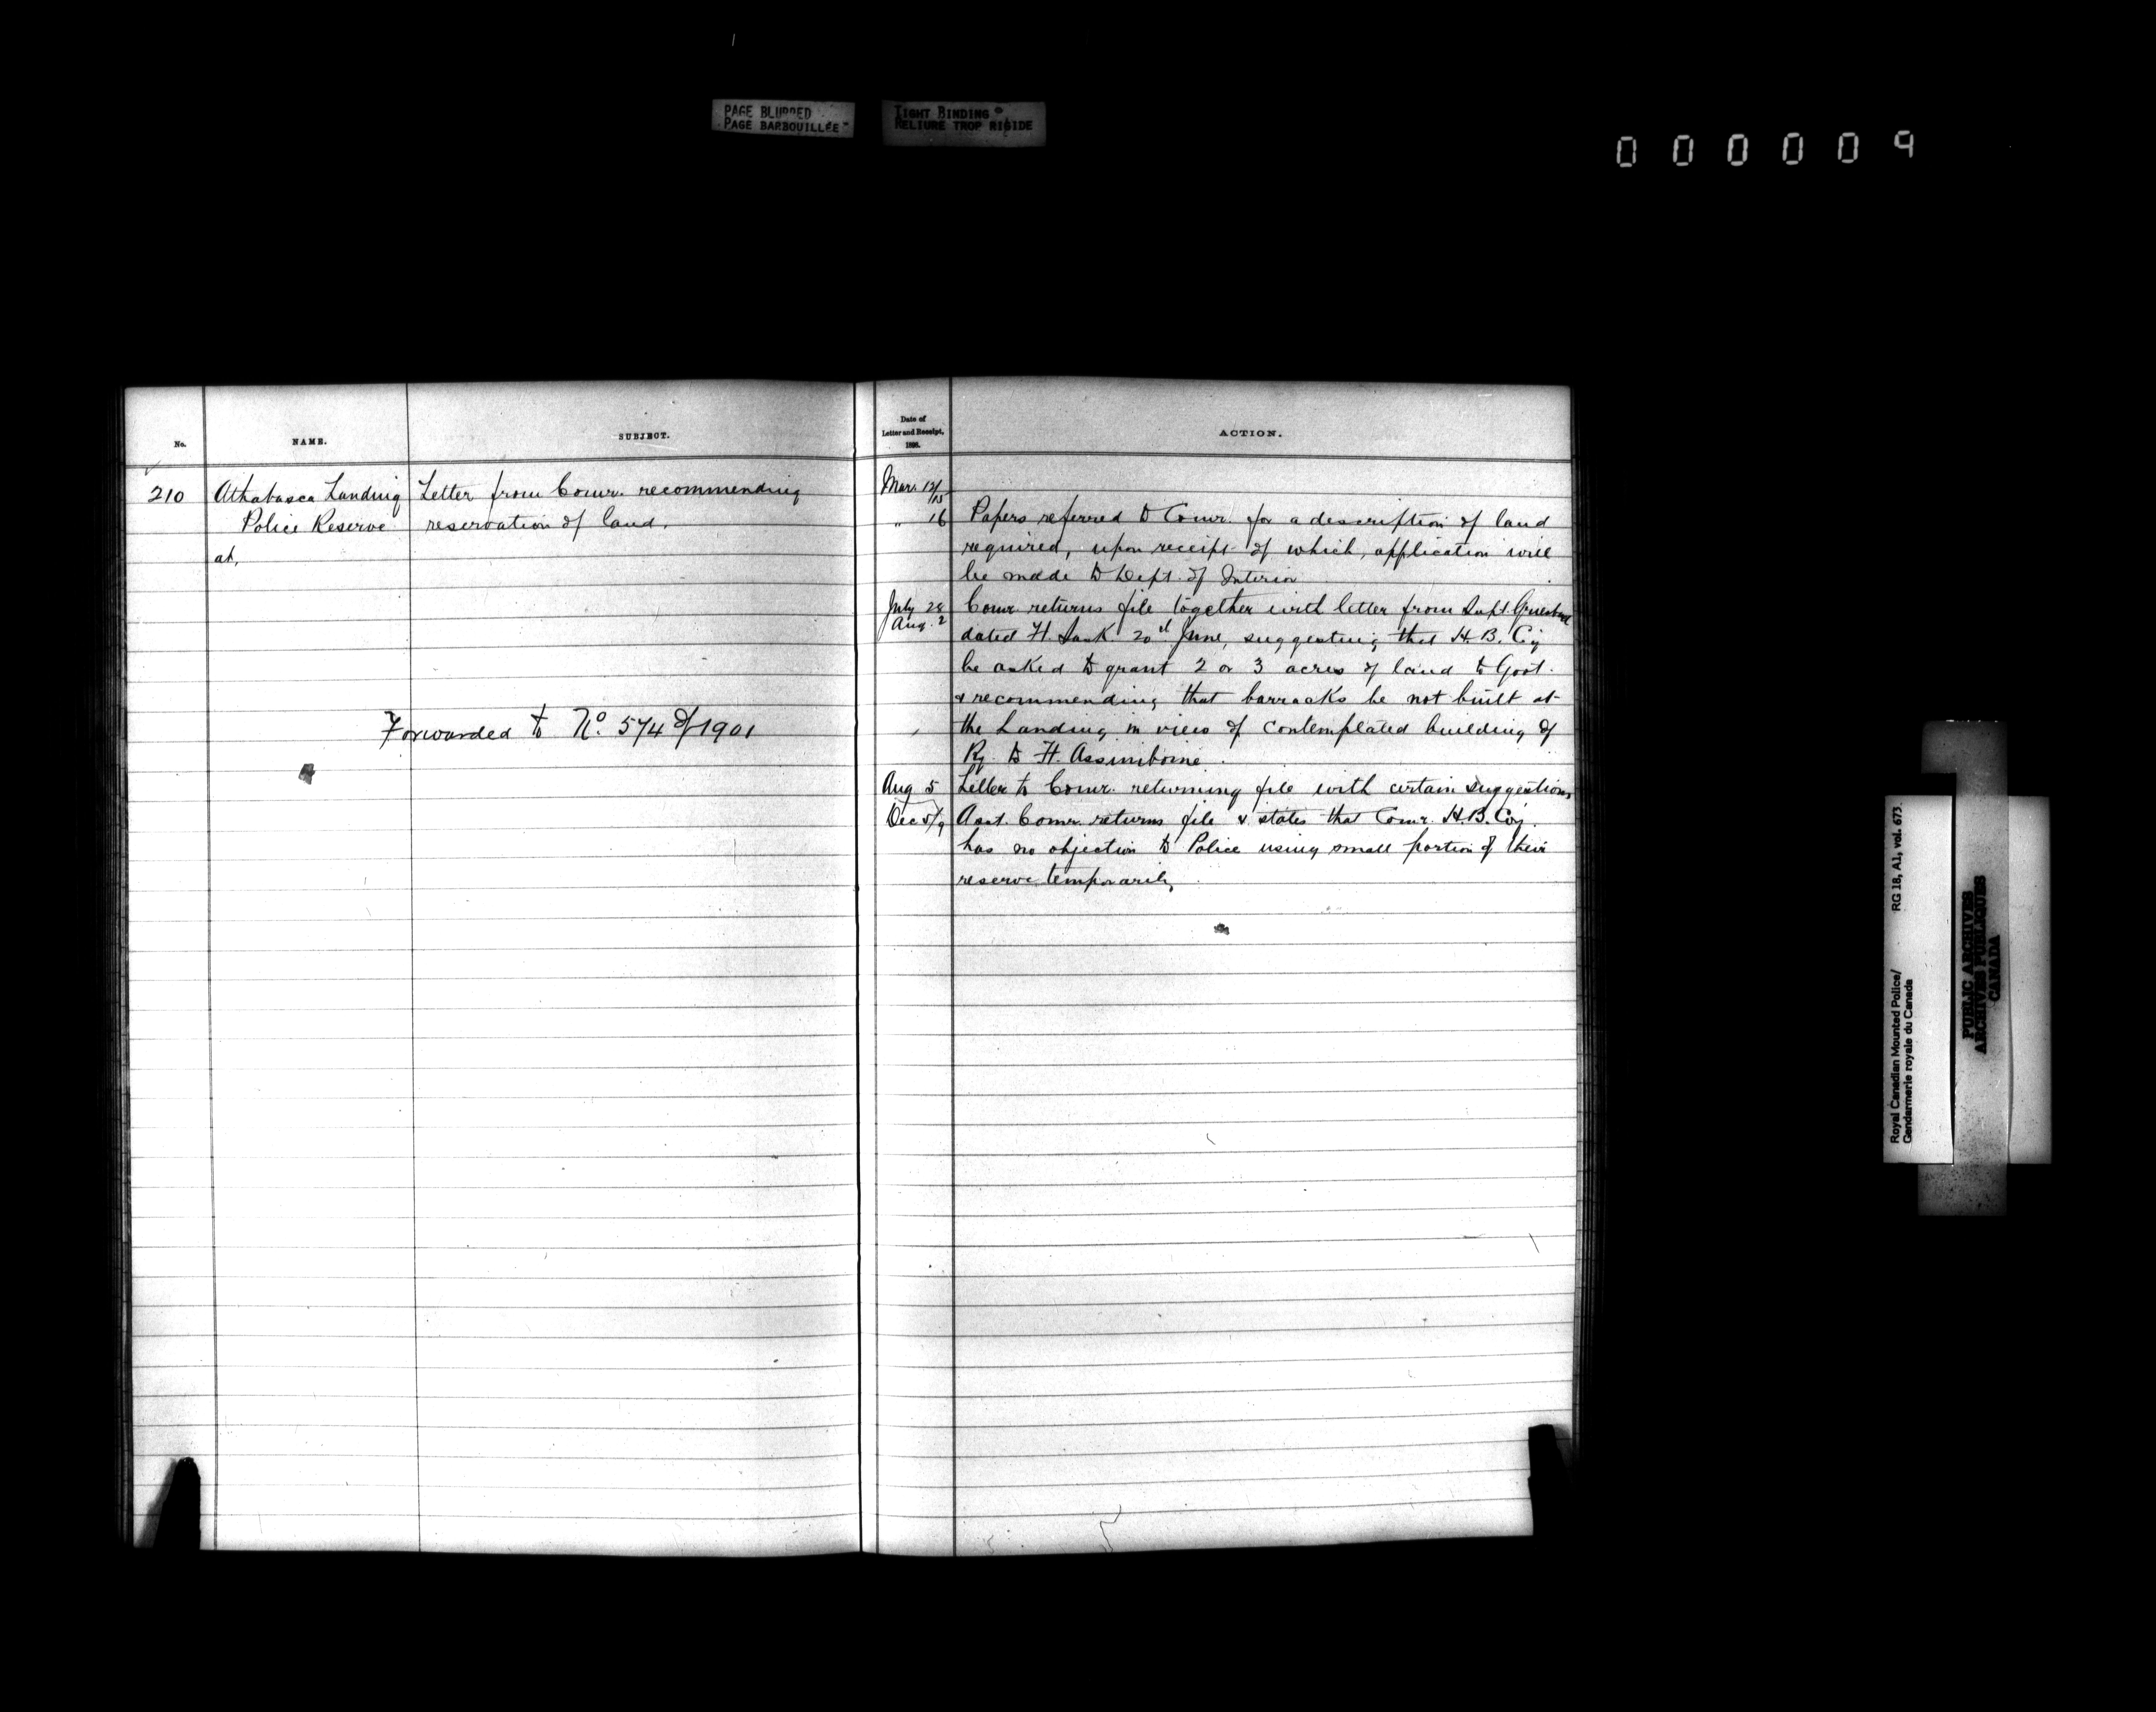 PAGE BLURRED
PAGE BARBOUILLÉE
TIGHT BINDING
RELIURE TROP RIGIDE
000009
No.
NAME.
SUBJECT.
210 Athabasca Landing Letter from Comr. recommending
Police Reserve reservation of land.
at,
Forwarded to No. 574 of 1901
Date of
Letter and Receipt,
1898.
ACTION.
Mar. 12/15
" 16 Papers referred to Comr. for a description of land
required, upon receipt of which, application will
be made to Dept. of Interior
July 28 Comr. returns file together with letter from Supt. Griesbach
Aug. 2
dated Ft. Sask. 20th June, suggesting that H.B. Coy
be asked to grant 2 or 3 acres of land to Govt.
& recommending that barracks be not built at
the Landing in view of contemplated building of
Ry. to Ft. Assiniboine.
Aug 5 Letter to Comr. returning file with certain suggestions
Dec 5/9 Asst. Comr. returns file & states that Comr. H.B. Coy.
has no objection to Police using small portion of their
reserve temporarily.
Royal Canadian Mounted Police/
Gendarmerie royale du Canada
RG 18, A1, vol. 673.
PUBLIC ARCHIVES
ARCHIVES PUBLIQUES
CANADA